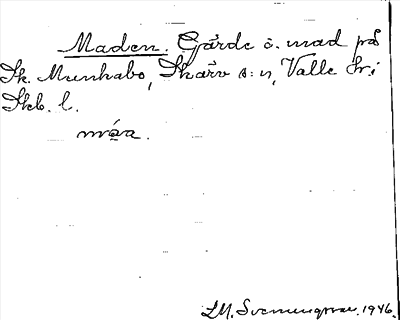 Maden. Gärde o. mad på
Sk. Munhabo, Skärv s:n, Valle hd i
Skb. l.
måa.
I.M. Svenungsson. 1946.